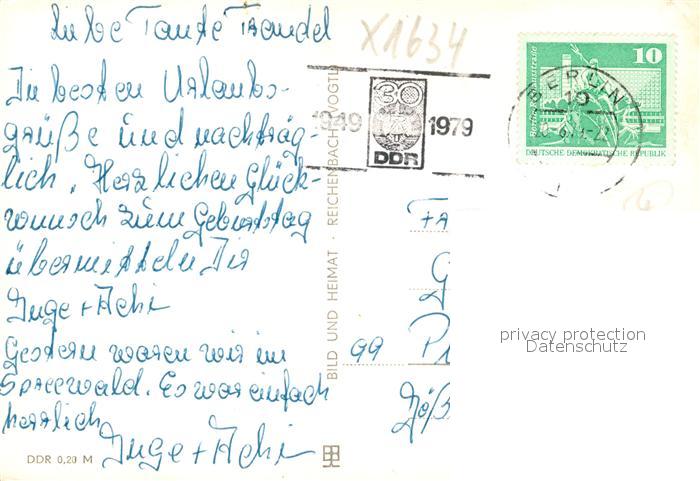 Liebe Tante Traudel
Die besten Urlaubs-
grüße und nachträg-
lich, Herzlichen Glück-
wunsch zum Geburtstag
übermitteln Dir
Inge + Achi
Gestern waren wir im
Spreewald. Es war einfach
herrlich
Inge + Achi
DDR 0,20 M
BILD UND HEIMAT · REICHENBACH (VOGTL)
X1634
1949 30 1979
DDR
BERLIN
10
DEUTSCHE DEMOKRATISCHE REPUBLIK
99
privacy protection
Datenschutz